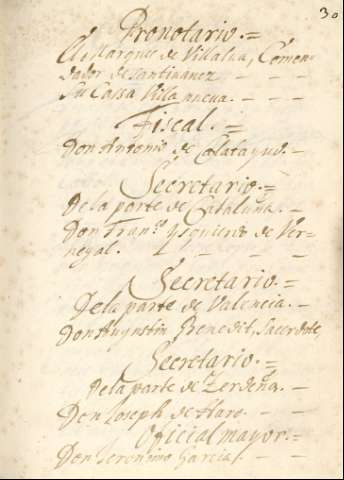 30
Pronotario.=
El Marques de Villalua, Comen-
dador de santiuanez - - -
Su Cassa Villa nueua. - - -
Fiscal.=
Don Antonio de Calatayud. -
Secretario.=
De la parte de Cataluña. -
Don Fran.co yzquierdo de Ver-
negal. - - - - -
Secretario.=
De la parte de Valencia. -
Don Augustin Benedit, Sacerdote,
Secretario.=
de la parte de Zerdeña. -
Don Joseph de Haro. - -
Oficial mayor.=
Don Geronimo Garcia. - -